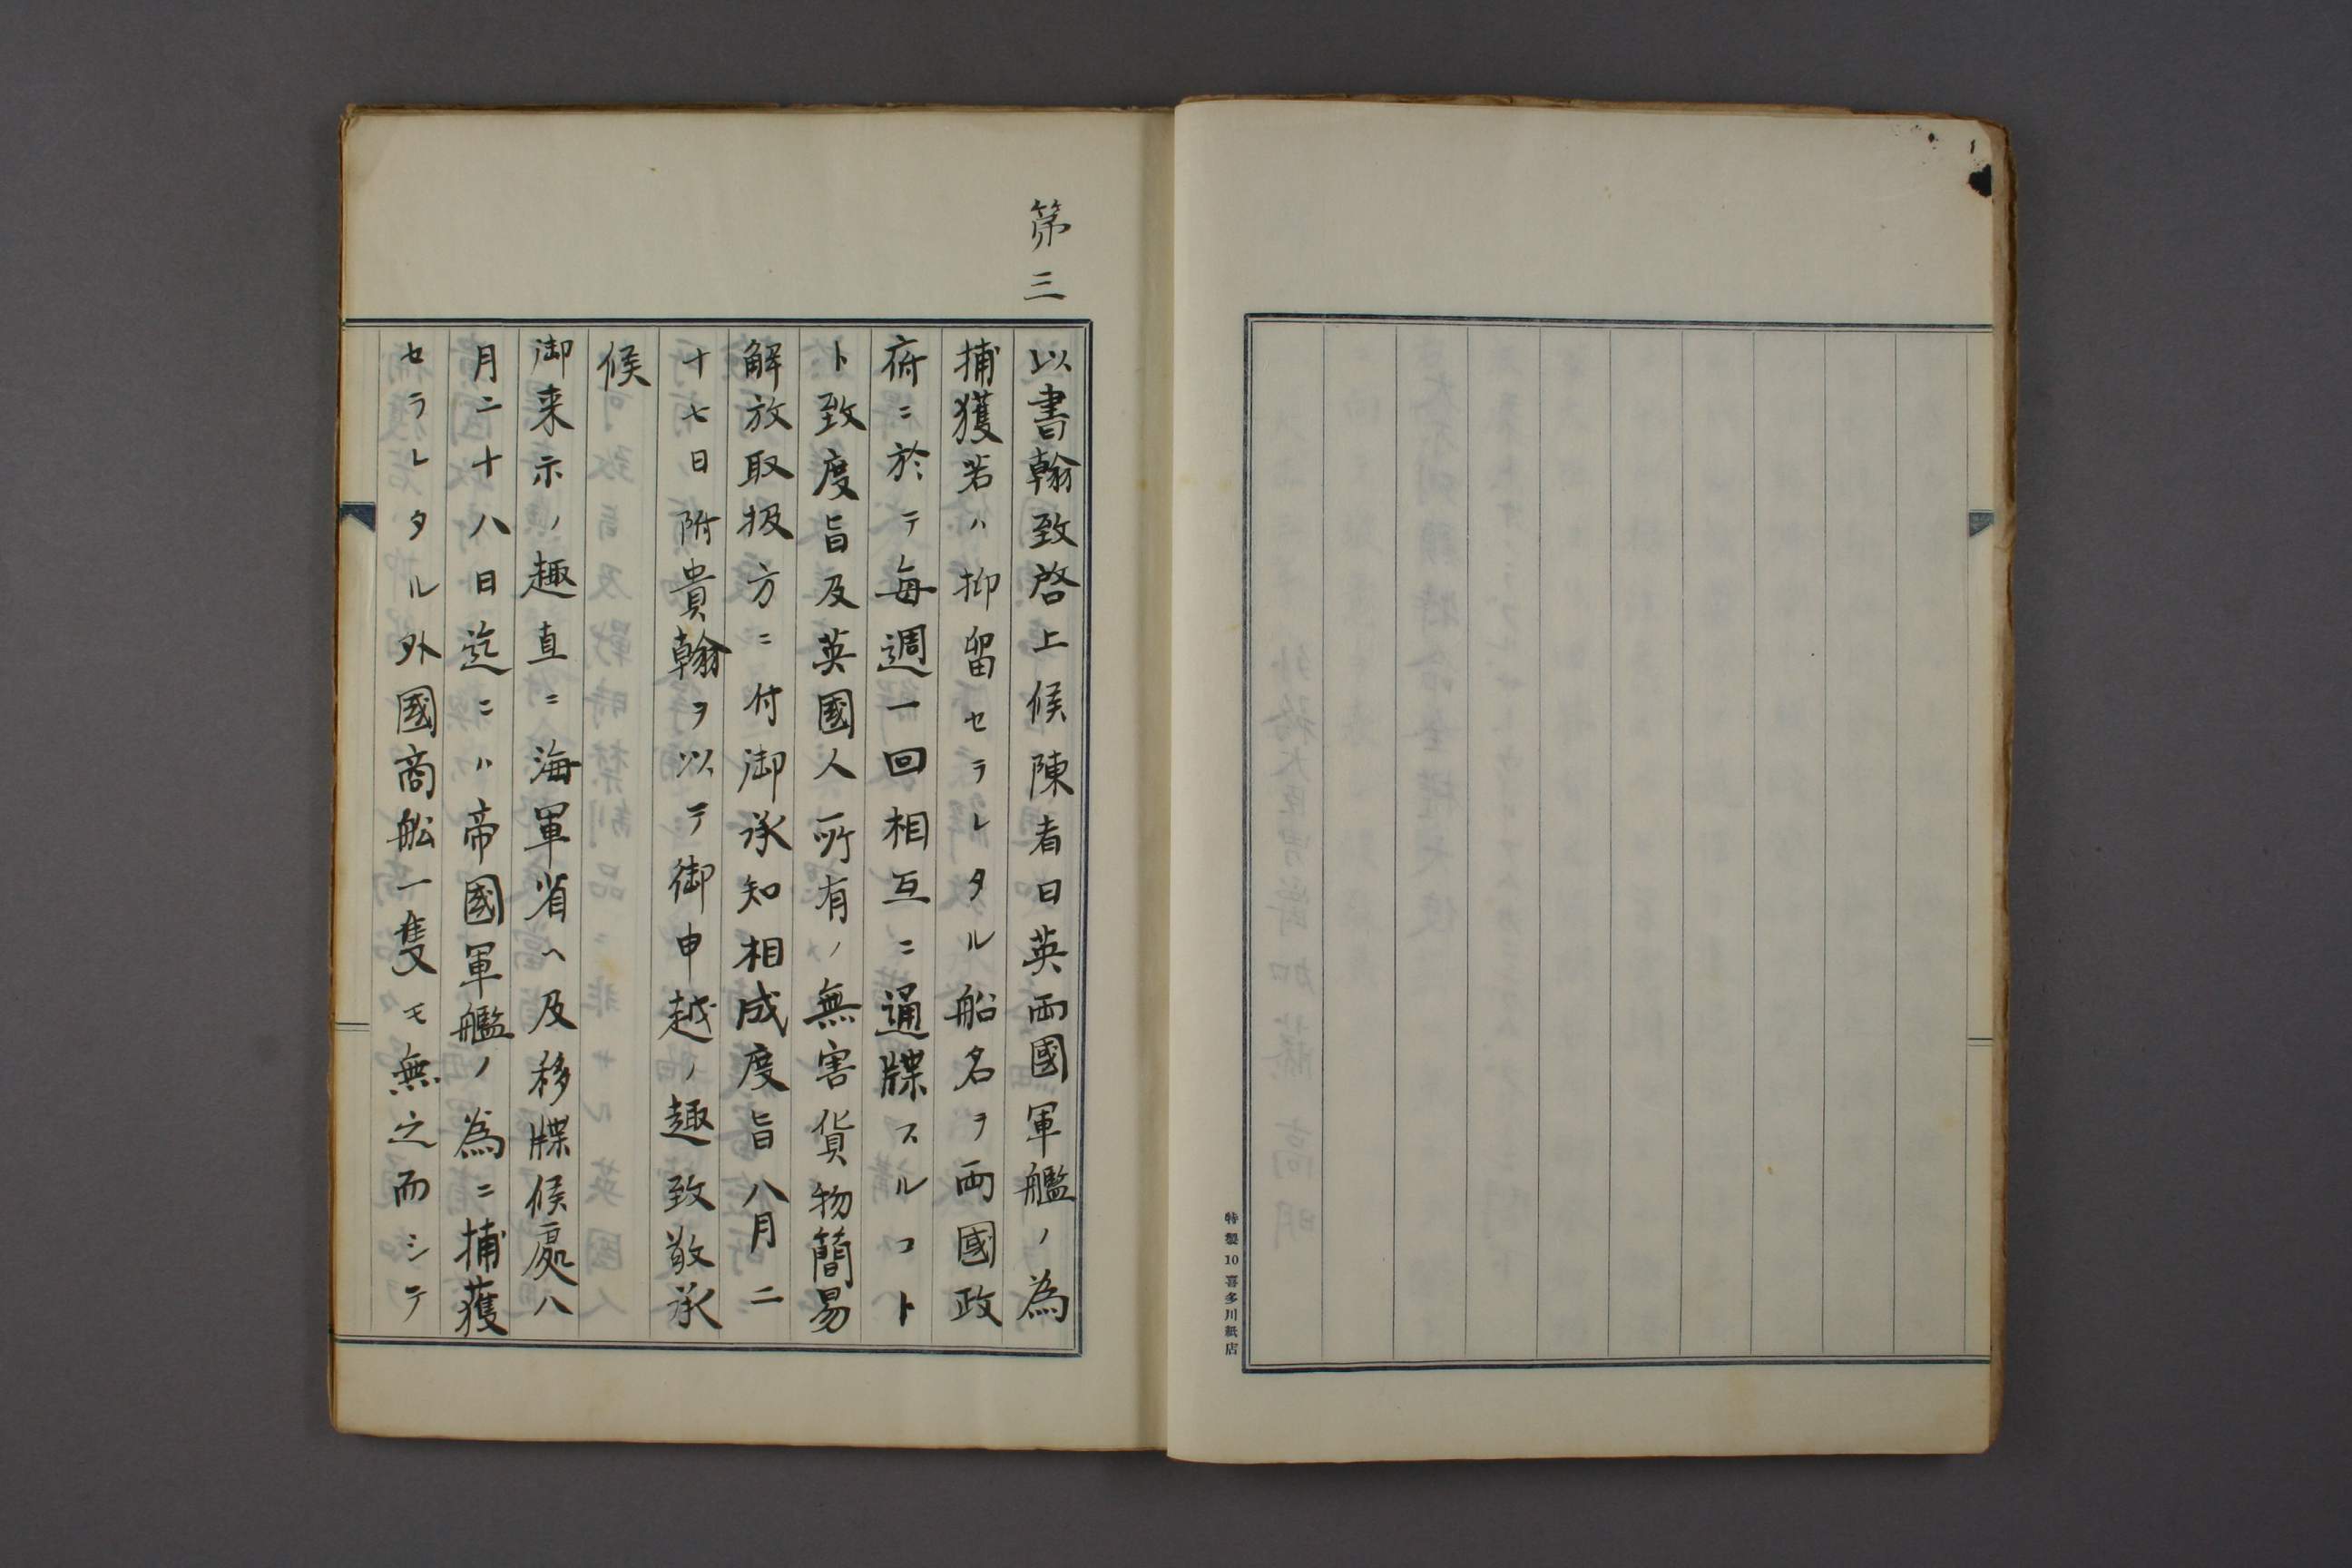 特製10喜多川紙店
第三
以書翰致啓上候陳者日英両國軍艦ノ為
捕獲若ハ抑留セラレタル船名ヲ両國政
府ニ於テ毎週一回相互ニ通牒スルコト
ト致度旨及英國人所有ノ無害貨物簡易
解放取扱方ニ付御承知相成度旨八月二
十七日附貴翰ヲ以テ御申越ノ趣致敬承
候
御来示ノ趣直ニ海軍省ヘ及移牒候處八
月二十八日迄ニハ帝國軍艦ノ為ニ捕獲
セラレタル外國商舩一隻モ無之而シテ